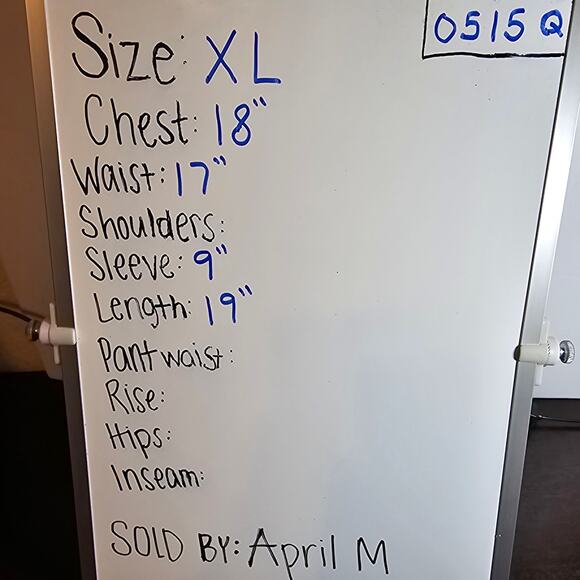 0515Q
Size: XL
Chest: 18"
Waist: 17"
Shoulders:
Sleeve: 9"
Length: 19"
Pant waist:
Rise:
Hips:
Inseam:
SOLD BY: April M